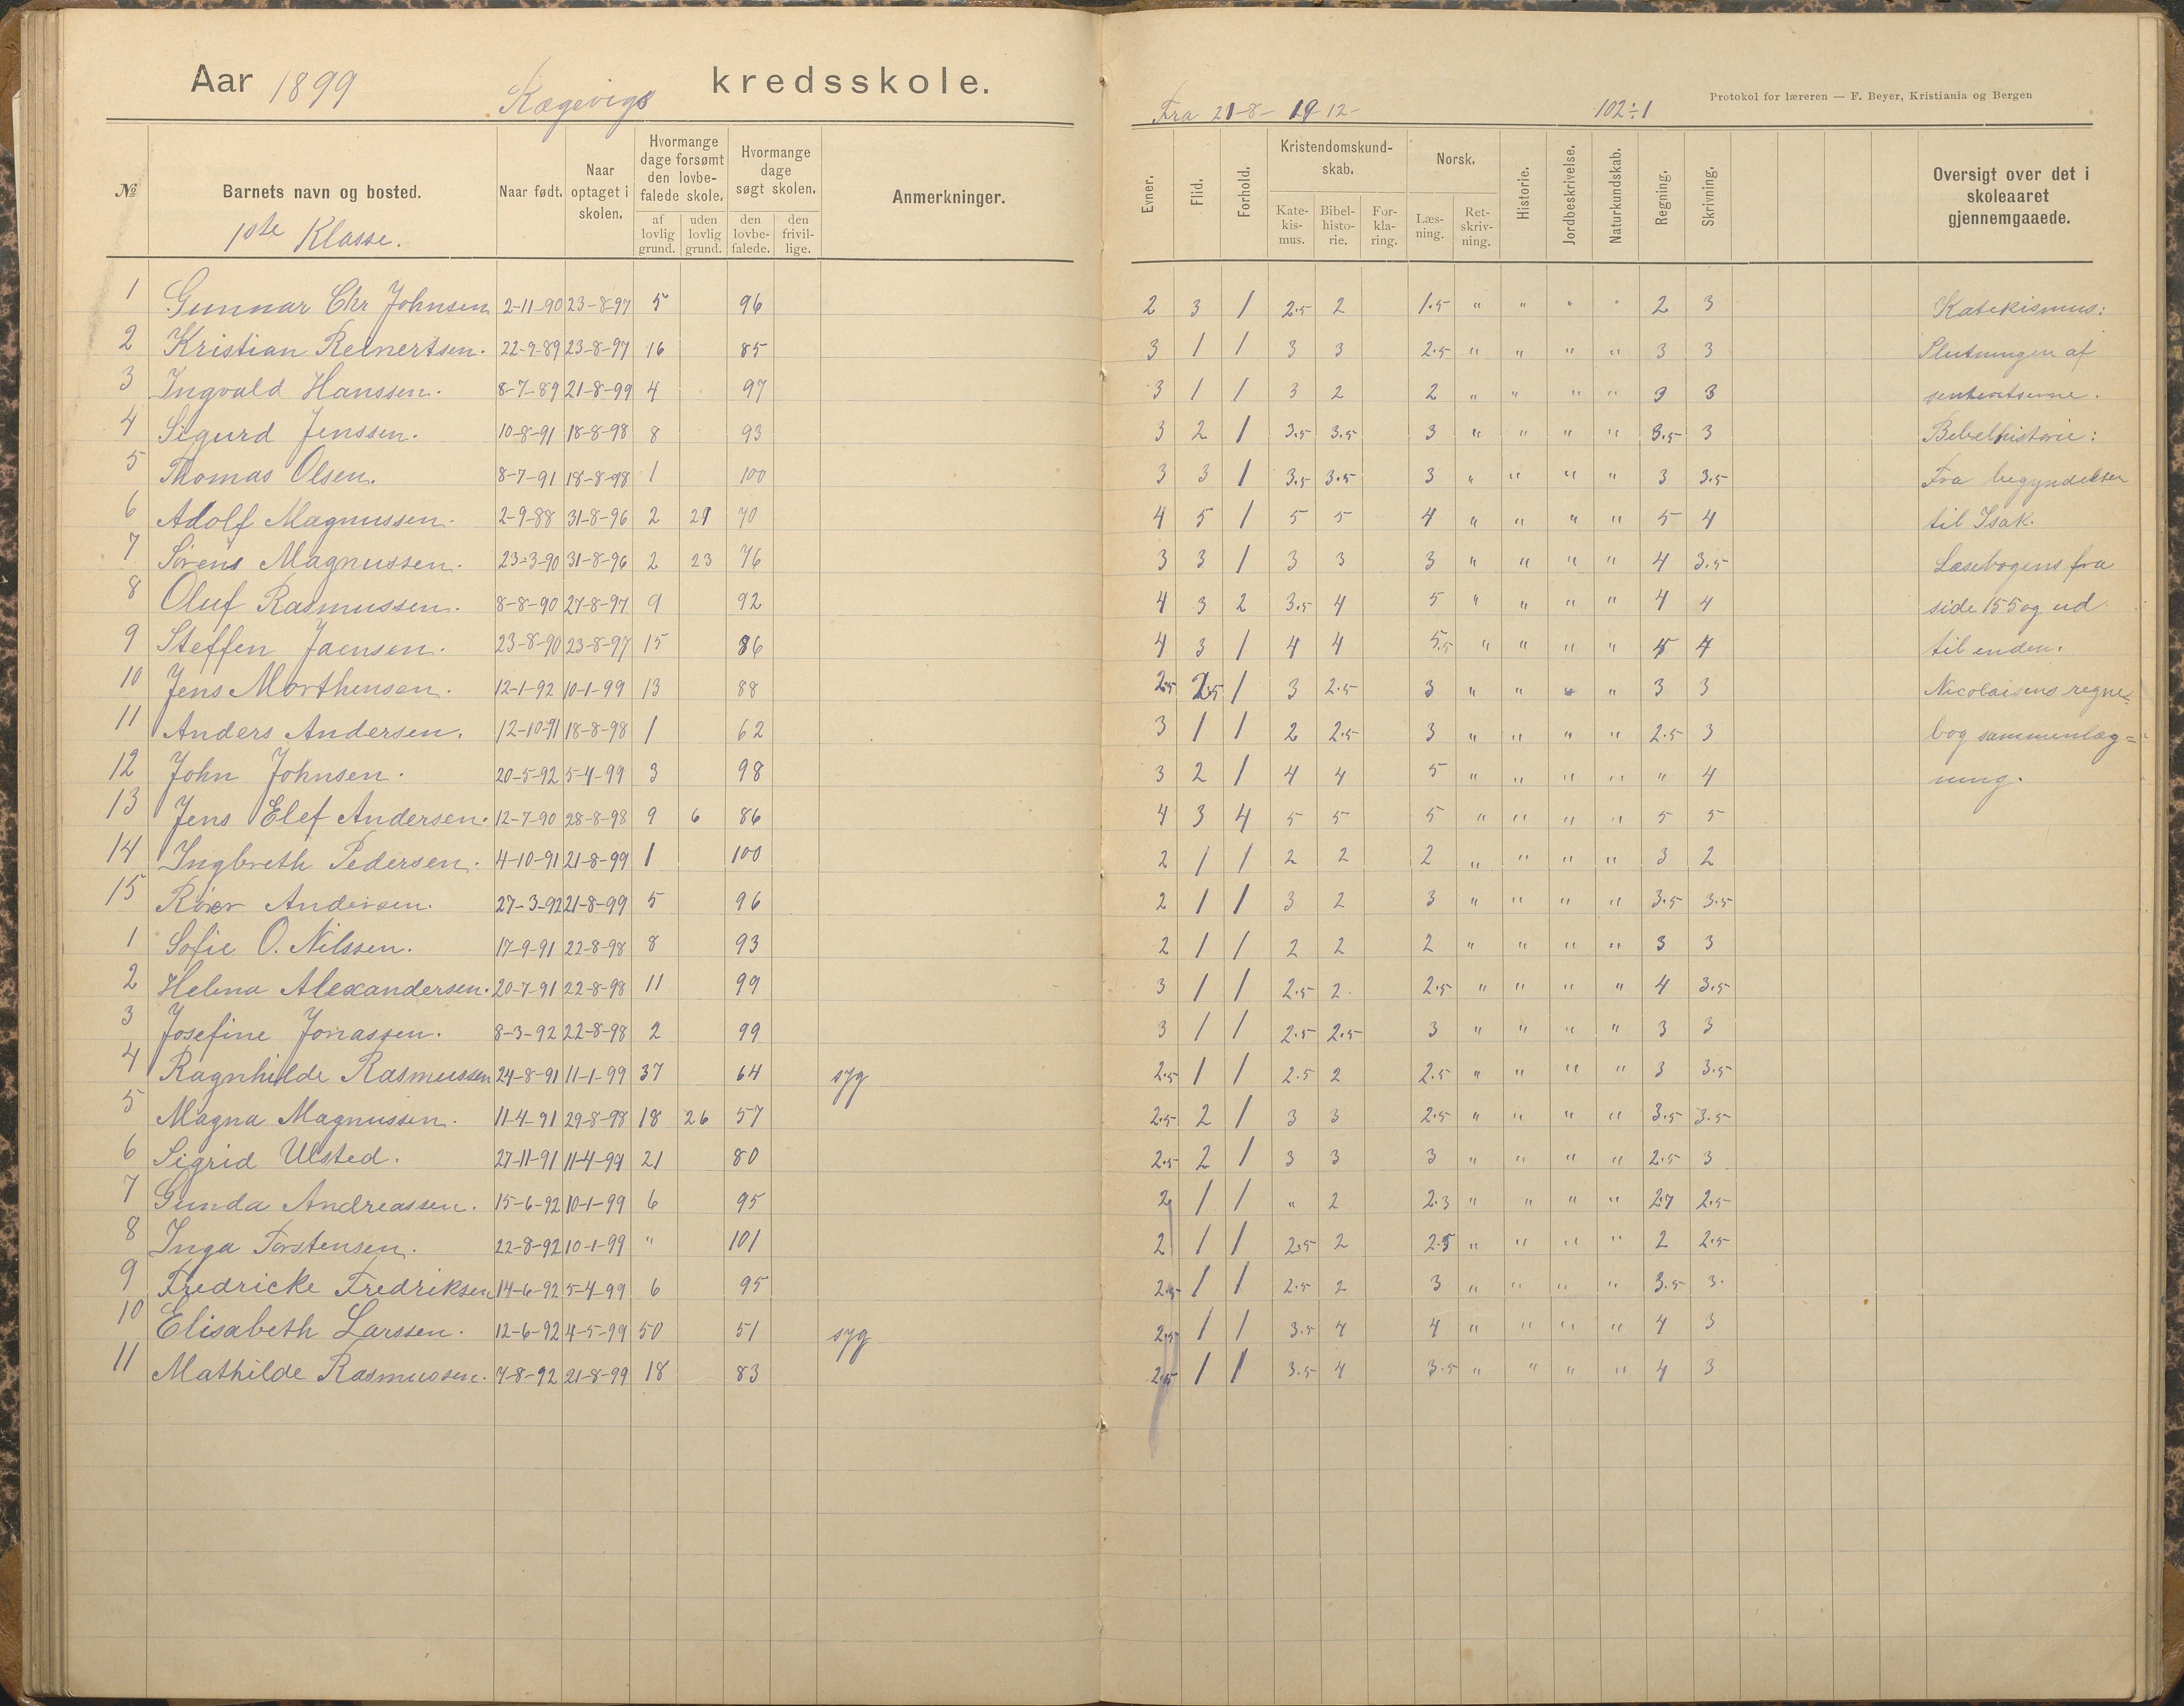 Aar 1899 Kægevigs kredsskole.
Fra 21-8- 19-12- 102÷1 Protokol for læreren — F. Beyer, Kristiania og Bergen
№ Barnets navn og bosted. Naar født. Naar optaget i skolen. Hvormange dage forsømt den lovbefalede skole. af lovlig grund. uden lovlig grund. Hvormange dage søgt skolen. den lovbefalede. den frivillige. Anmerkninger. Evner. Flid. Forhold. Kristendomskundskab. Katekismus. Bibelhistorie. Forklaring. Norsk. Læsning. Retskrivning. Historie. Jordbeskrivelse. Naturkundskab. Regning. Skrivning. Oversigt over det i skoleaaret gjennemgaaede.
1ste Klasse.
1 Gunnar Chr Johnsen 2-11-90 23-8-97 5 96 2 3 1 2.5 2 1.5 " " " " 2 3 Katekismus:
2 Kristian Reinertsen. 22-9-89 23-8-97 16 85 3 1 1 3 3 2.5 " " " " 3 3 Slutningen af
3 Ingvald Hanssen. 8-7-89 21-8-99 4 97 3 1 1 3 2 2 " " " " 3 3
4 Sigurd Jenssen. 10-8-91 18-8-98 8 93 3 2 1 3.5 3.5 3 " " " " 3.5 3 Bibelhistorie:
5 Thomas Olsen. 8-7-91 18-8-98 1 100 3 3 1 3.5 3.5 3 " " " " 3 3.5 Fra begyndelsen
6 Adolf Magnussen. 2-9-88 31-8-96 2 29 70 4 5 1 5 5 4 " " " " 5 4 til Isak.
7 Sørens Magnussen. 23-3-90 31-8-96 2 23 76 3 3 1 3 3 3 " " " " 4 3.5 Læsebogens fra
8 Oluf Rasmussen. 8-8-90 27-8-97 9 92 4 3 2 3.5 4 5 " " " " 4 4 side 155 og ud
9 Steffen Jaensen. 23-8-90 23-8-97 15 86 4 3 1 4 4 5.5 " " " " 5 4 til enden.
10 Jens Morthensen. 12-1-92 10-1-99 13 88 2.5 2.5 1 3 2.5 3 " " " " 3 3 Nicolaisens regne=
11 Anders Andersen. 12-10-91 18-8-98 1 62 3 1 1 2 2.5 3 " " " " 2.5 3 bog sammenlæg=
12 John Johnsen. 20-5-92 5-4-99 3 98 3 2 1 4 4 5 " " " " " 4 ning.
13 Jens Elef Andersen. 12-7-90 28-8-98 9 6 86 4 3 4 5 5 5 " " " " 5 5
14 Ingbreth Pedersen. 4-10-91 21-8-99 1 100 2 1 1 2 2 2 " " " " 3 2
15 Andersen. 27-3-92 21-8-99 5 96 2 1 1 3 2 3 " " " " 3.5 3.5
1 Sofie O. Nilssen. 17-9-91 22-8-98 8 93 2 1 1 2 2 2 " " " " 3 3
2 Helena Alexandersen. 20-7-91 22-8-98 11 99 3 1 1 2.5 2. 2.5 " " " " 4 3.5
3 Josefine Jonassen. 8-3-92 22-8-98 2 99 3 1 1 2.5 2.5 3 " " " " 3 3
4 Ragnhilde Rasmussen 24-8-91 11-1-99 37 64 syg 2.5 1 1 2.5 2 2.5 " " " " 3 3.5
5 Magna Magnussen. 11-4-91 29-8-98 18 26 57 2.5 2 1 3 3 2.5 " " " " 3.5 3.5
6 Sigrid Ulsted. 27-11-91 11-4-99 21 80 2.5 2 1 3 3 3 " " " " 2.5 3
7 Gunda Andreassen. 15-6-92 10-1-99 6 95 2 1 1 " 2 2.3 " " " " 2.7 2.5
8 Inga Torstensen. 22-8-92 10-1-99 " 101 2 1 1 2.5 2 2.5 " " " " 2 2.5
9 Fredricke Fredriksen 14-6-92 5-4-99 6 95 2.5 1 1 2.5 2 3 " " " " 3.5 3.
10 Elisabeth Larssen. 12-6-92 4-5-99 50 51 syg 2.5 1 1 3.5 4 4 " " " " 4 3
11 Mathilde Rasmussen. 7-8-92 21-8-99 18 83 2.5 1 1 3.5 4 3.5 " " " " 4 3